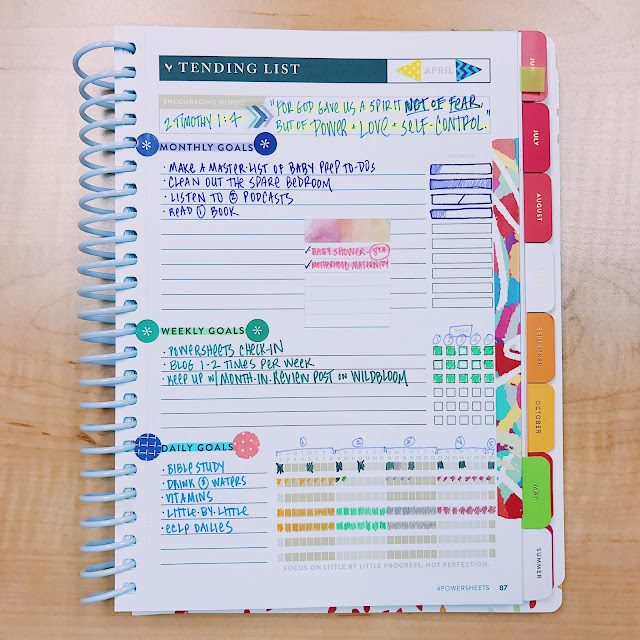 TENDING LIST
APRIL
ENCOURAGING WORDS
2 TIMOTHY 1:7
"FOR GOD GAVE US A SPIRIT NOT OF FEAR,
BUT OF POWER + LOVE + SELF-CONTROL."
MONTHLY GOALS
PROGRESS
• MAKE A MASTER-LIST OF BABY PREP TO-DOS
• CLEAN OUT THE SPARE BEDROOM
• LISTEN TO PODCASTS
• READ ① BOOK
✓ BABY SHOWER - 8TH
✓ MOTHERHOOD MATERNITY
WEEKLY GOALS
WEEK
• POWERSHEETS CHECK-IN
• BLOG 1-2 TIMES PER WEEK
• KEEP UP W/ MONTH-IN-REVIEW POST ON WILDBLOOM
DAILY GOALS
• BIBLE STUDY
• DRINK WATERS
• VITAMINS
• LITTLE-BY-LITTLE
• ECLP DAILIES
FOCUS ON LITTLE BY LITTLE PROGRESS, NOT PERFECTION.
#POWERSHEETS 87
JULY
AUGUST
SEPTEMBER
OCTOBER
MAY
SUMMER